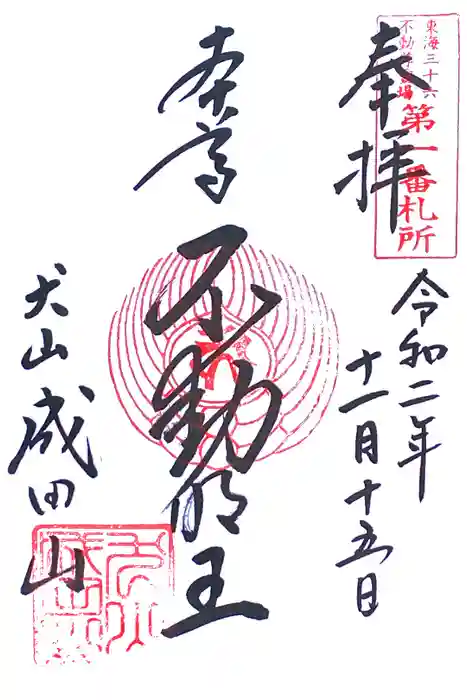 東海三十六
不動尊霊場
第一番札所
奉拝
令和二年
十一月十五日
本尊
不動明王
犬山成田山